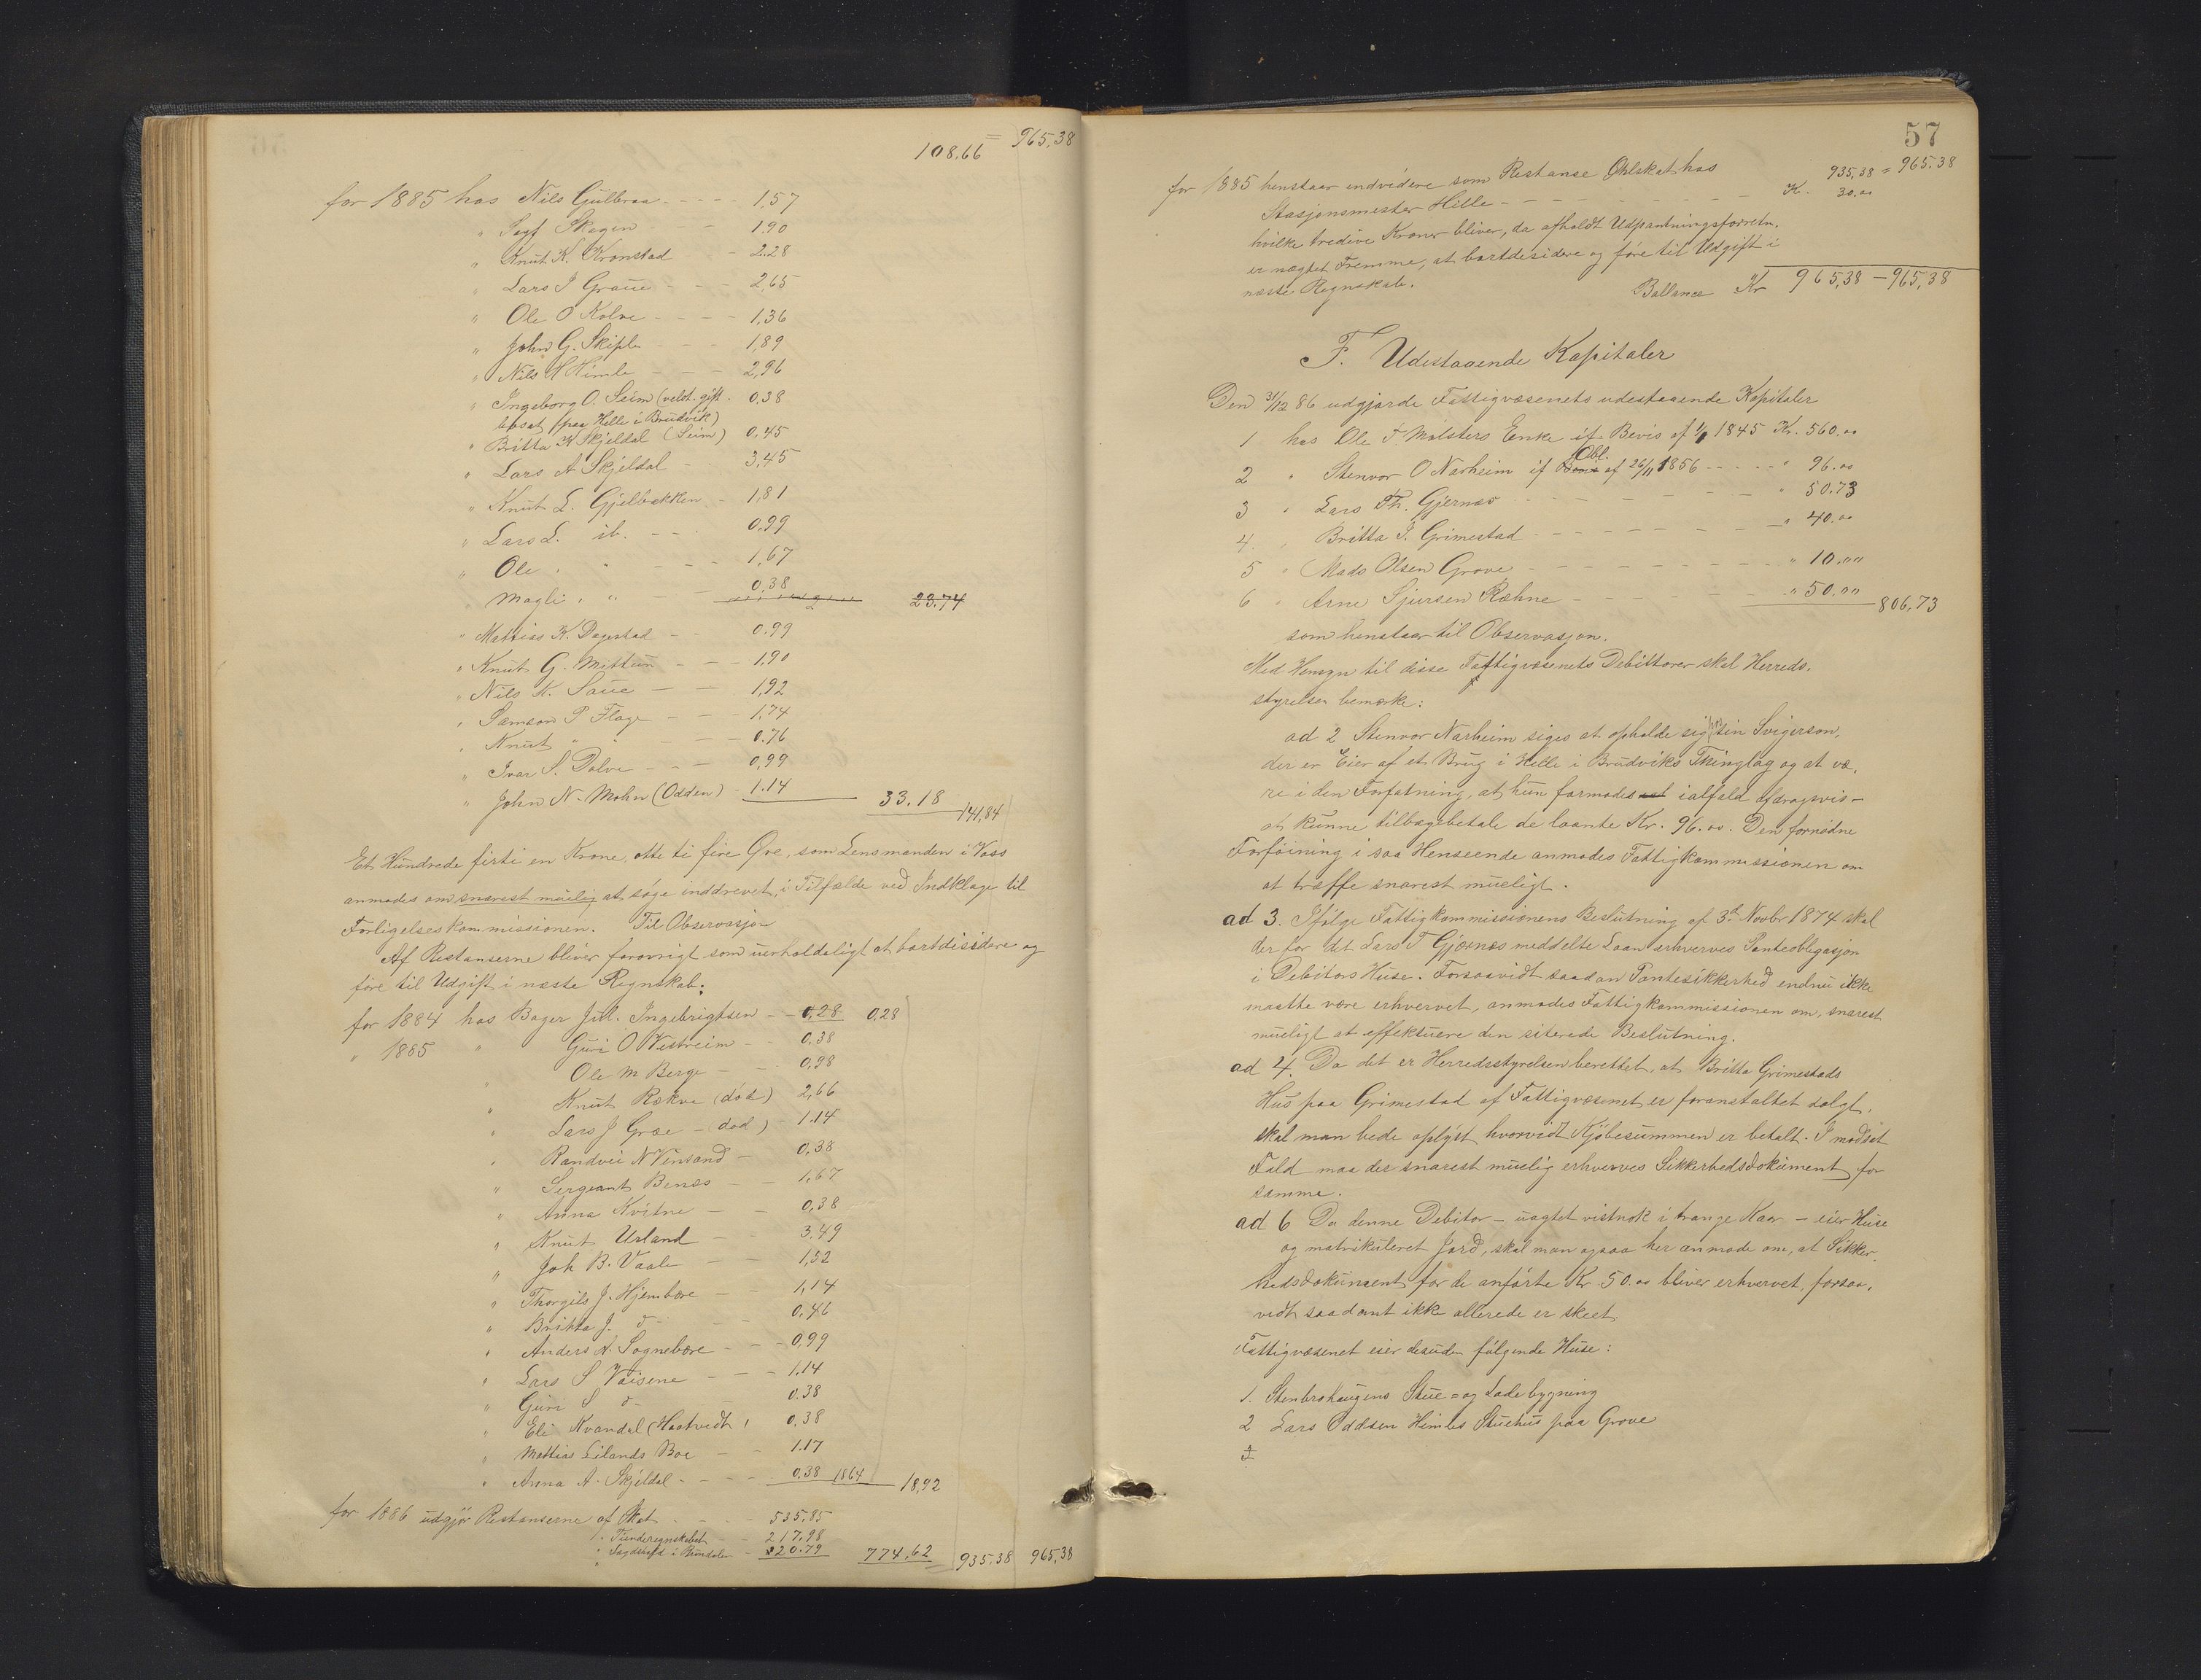 108.66 = 965,38
for 1885 hos Nils Gulbraa - - - - 1,57
" Sagf Skagen - - - 1.90
" Knut K. Kronstad - 2.28
" Lars J Graue - - - 2,65
" Ole O Kolve - - - - 1,36
" John G. Skiple - - - 1,89
" Nils S Himle - - - 2,96
" Ingeborg O. Seim (velst. gift. 0.38
bosat paa Helle i Brudvik)
" Britta K Skjeldal (Seim) 0,45
" Lars A Skjeldal - 3,45
" Knut L. Gjelbækken - 1,81
" Lars L. ib. - - - 0,99
" Ole " " - - - 1,67
" Magli " " - - 0,38 23.74
" Mattias K. Dagestad - - 0.99
" Knut G. Mittun - - - 1,90
" Nils K. Saue - - 1,92
" Samson P Flage - - - 1,74
" Knut " " - - - 0.76
" Ivar S. Dolve - - - 0,99
" John N. Mohn (Odden) - 1.14 33.18 141,84
Et Hundrede firti en Krone, otte ti fire Øre, som Lensmanden i Voss
anmodes om snarest muelig at søge inddrevet, i Tilfælde ved Indklage til
Forligelseskommissionen. Til Observasjon
Af Restanserne bliver forøvrigt som uerholdeligt at bortdisidere og
føre til Udgift i næste Regnskab:
for 1884 hos Bager Jul. Ingebrigtsen - - 0,28 0,28
" 1885 " Guri O Vestreim - - 0.38
Ole M Berge - - 0,98
" Knut Rokve (død) 2,66
" Lars J Græe - (død) - 1.14
" Randvei N Vinsand - 0.38
" Sergeant Benæs - - 1,67
" Anna Kvitne - - 0,38
" Knut Urland - 3.49
" Joh B. Vaale - 1,52
" Thorgils J. Hjembøre - - 1,14
" Britta J. d - - 0,46
" Anders N. Sognebøre - - - 0,99
" Lars S Vaisene - - - 1.14
" Guri S d - - 0.38
" Eli Kvandal (Haatvedt) 0,38
" Mattias Eilands Boe - - 1.17
" Anna A. Skjeldal - - - - 0.38 1864 18,92
for 1886 udgjør Restanserne af Skat - - - 535.85
" Tienderegnskabet - 217,98
" Sagdskafd i Rundalen - 20.79 774,62 935.38 965,38
57
for 1885 henstaar endvidere som Restanse Ohlskat hos 935,38 = 965.38
Stasjonsmester Hille - - - - - - - - K. 30.00
hvilke tredive Kroner bliver, da afholdt Udpantningsforretn.
er nægtet Fremme, at bortdesidere og føre til Udgift i
næste Regnskab.
Ballance Kr 965,38 - 965,38
F. Udestaaende Kapitaler
Den 31/12 86 udgjorde Fattigvæsenets udestaaende Kapitaler
1 hos Ole T. Mølsters Enke if. Bevis af 1/1 1845 Kr. 560.00
2 " Stenvor O Nærheim if Bevis Obl. af 26/11 1856 - - - - " 96.00
3 " Lars Th. Gjernæs - - - - - " 50.73
4. " Britta I. Grimestad - - - - - - - " 40.00
5 " Mads Olsen Grove - - - - - - - - " 10.00
6 " Arne Sjursen Ræhne - - - - - " 50.00 806,73
som henstaar til Observasjon.
Med Hensyn til disse Fattigvæsenets Debittorer skal Herreds-
styrelsen bemærke:
ad 2 Stenvor Nærheim siges at opholde sig hos sin Svigersøn,
der er Eier af et Brug i Helle i Brudviks Thinglag og at væ-
re i den Forfatning, at hun formodes at ialfald afdragsvis
at kunne tilbagebetale de laante Kr. 96.00. Den fornødne
Forføining i saa Henseende anmodes Fattigkommissionen om
at træffe snarest mueligt.
ad 3. Ifølge Fattigkommissionens Beslutning af 3d. Novbr 1874 skal
der for det Lars T Gjærnes meddelte Laan erhverves Panteobligasjon
i Debitors Huse. Forsaavidt saadan Pantesikkerhed endnu ikke
maatte være erhvervet, anmodes Fattigkommissionen om, snarest
mueligt at effektuere den siterede Beslutning.
ad 4. Da det er Herredsstyrelsen berettet, at Britta Grimestads
Hus paa Grimestad af Fattigvæsenet er foranstaltet solgt,
skal man bede oplyst, hvorvidt Kjøbesummen er betalt. I modsat
Fald maa der snarest muelig erhverves Sikkerhedsdokument for
samme.
ad 6 Da denne Debitor - uagtet vistnok i trange Kaar - eier Huse
og matrikuleret Jord, skal man ogsaa her anmode om, at Sikker-
hedsdokument for de anførte Kr. 50.00 bliver erhvervet, forsaa-
vidt saadant ikke allerede er skeet.
Fattigvæsenet eier desuden følgende Huse:
1. Stenbrohaugens Stue = og Ladebygning
2 Lars Oddsen Himles Stuehus paa Grove